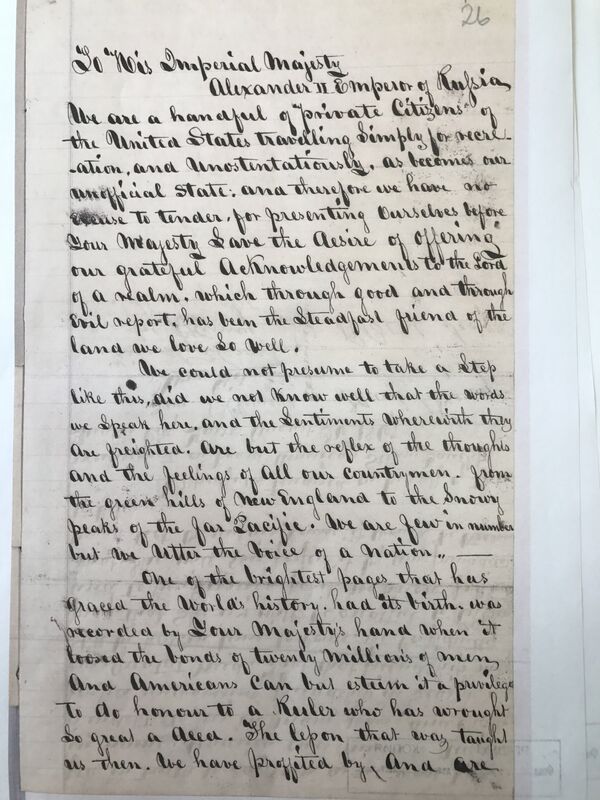 26
To His Imperial Majesty
Alexander II Emperor of Russia
We are a handful of private Citizens of
the United States traveling Simply for recre-
-ation, and Unostentatiously, as becomes our
unofficial state: and therefore we have no
excuse to tender, for presenting Ourselves before
Your Majesty Save the desire of Offering
our grateful Acknowledgements to the Lord
of a realm, which through good and through
Evil report, has been the Steadfast friend of the
land we love So well.
We could not presume to take a Step
like this, did we not know well that the words
we Speak here, and the Sentiments wherewith they
are freighted, are but the reflex of the thoughts
and the feelings of all our countrymen, from
the green hills of New England to the Snowy
peaks of the far Pacific. We are few in number
but we Utter the Voice of a nation.
One of the brightest pages that has
graced the World's history, had its birth, was
recorded by Your Majesty's hand when it
loosed the bonds of twenty millions of men,
And Americans can but esteem it a privilege
to do honour to a Ruler who has wrought
So great a deed. The lesson that was taught
us then, we have proffited by, And are